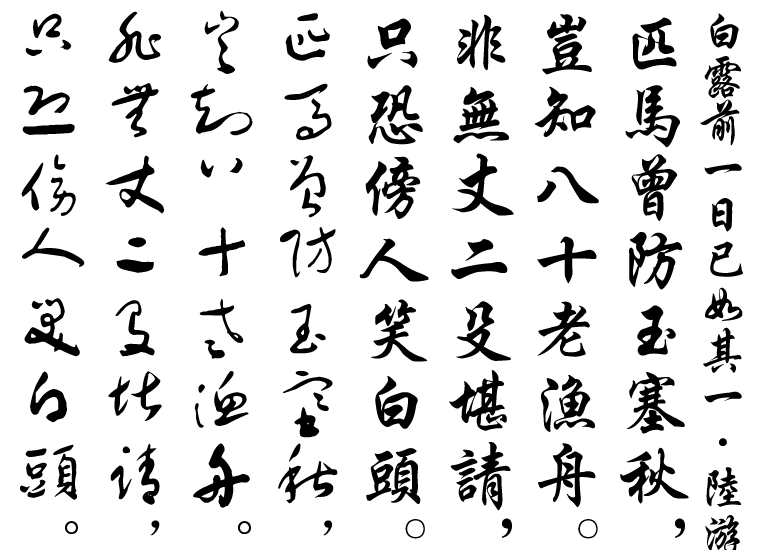 白露前一日已如其一·陸游
匹馬曾防玉塞秋，
豈知八十老漁舟。
非無丈二殳堪請，
只恐傍人笑白頭。
匹馬曾防玉塞秋，
豈知八十老漁舟。
非無丈二殳堪請，
只恐傍人笑白頭。